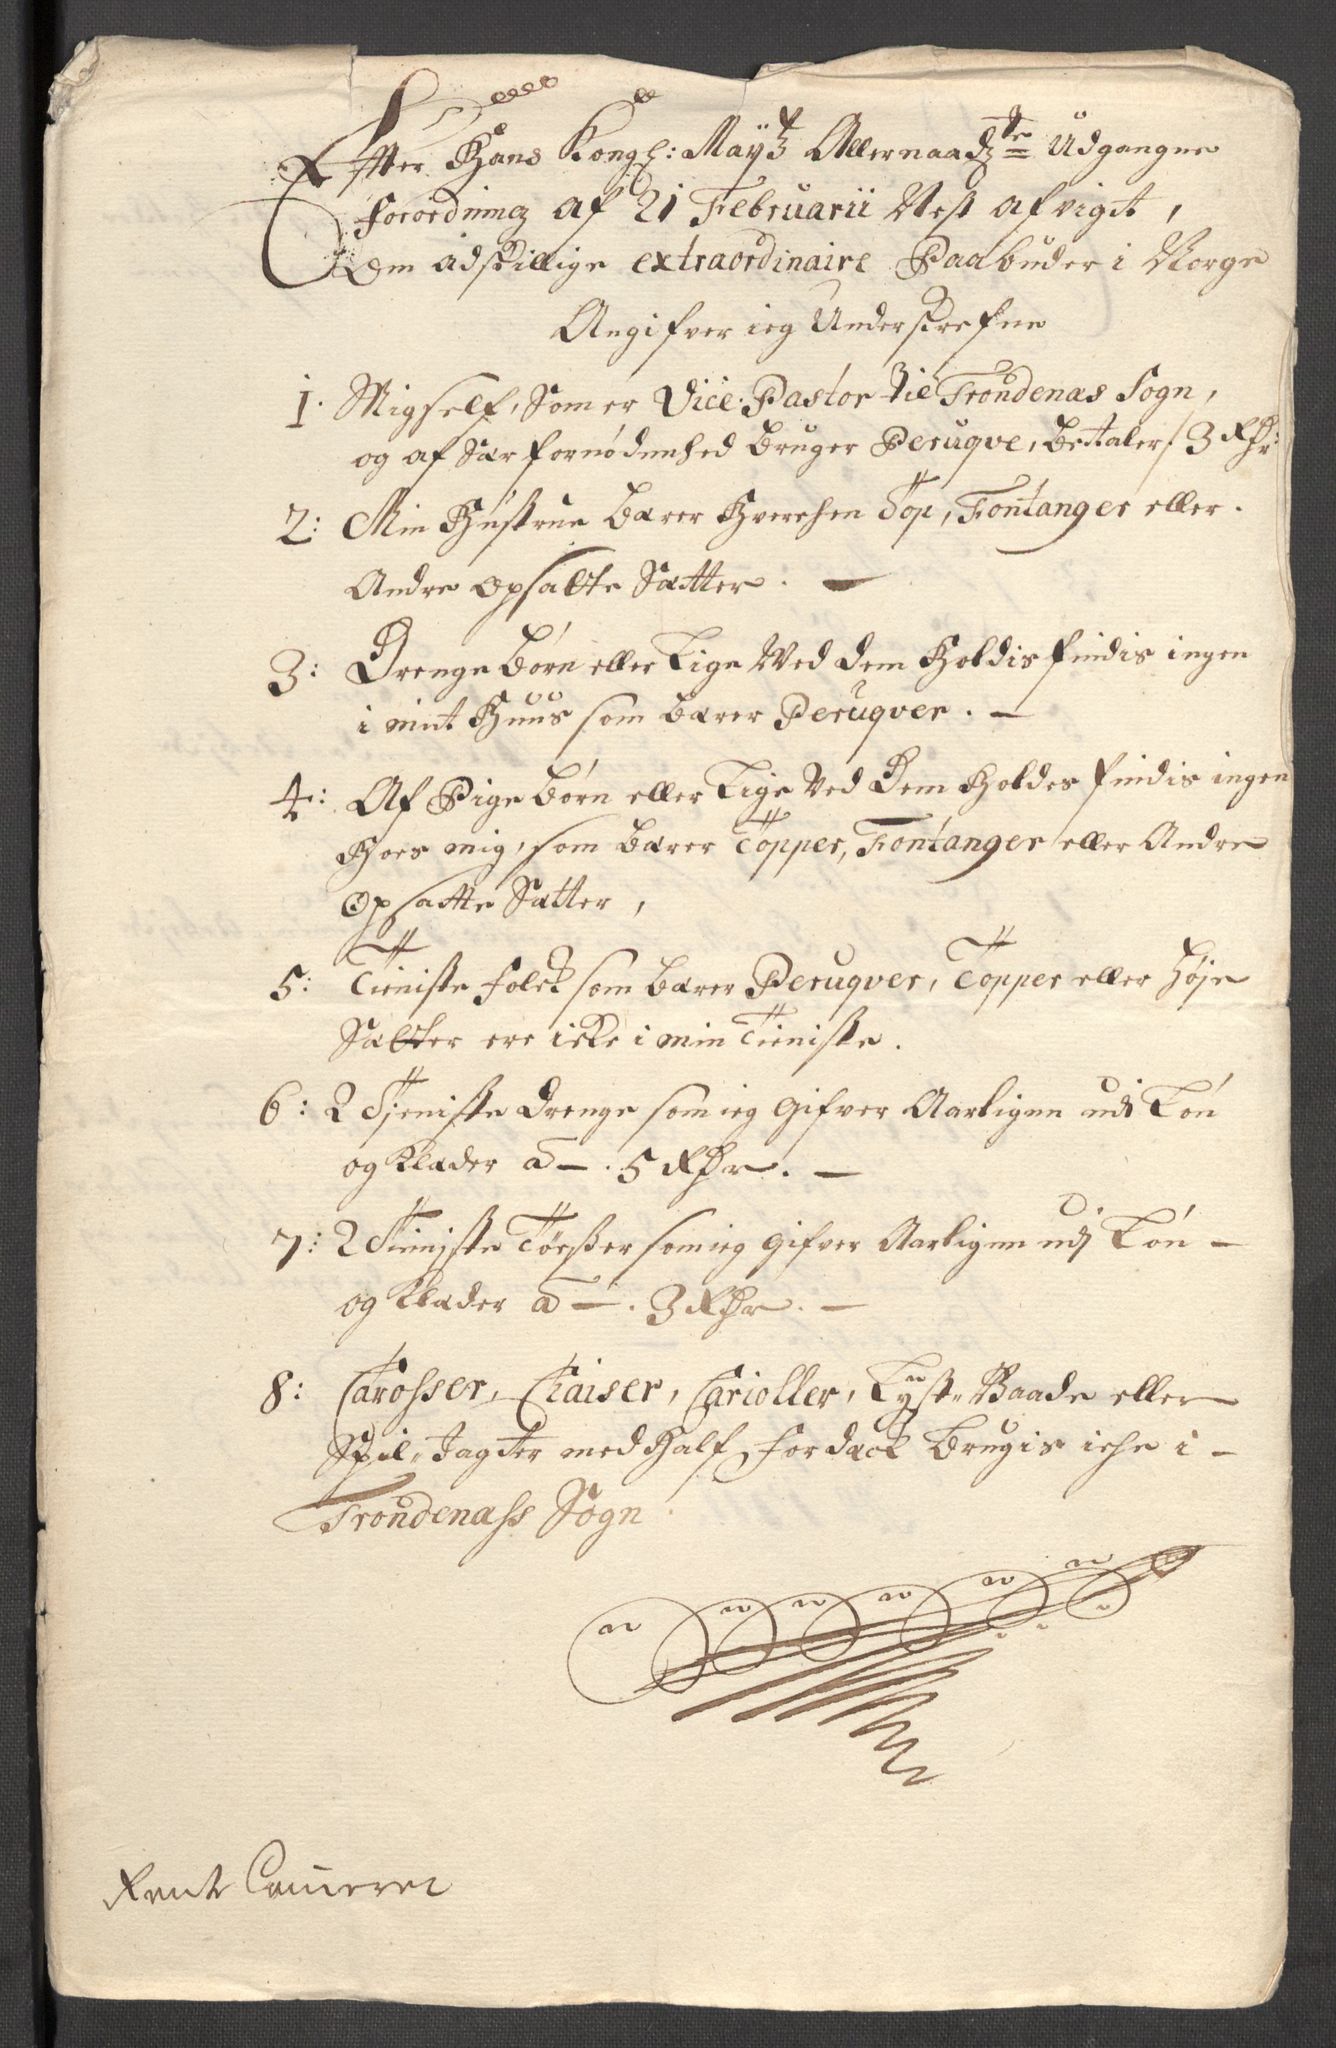 Effter Hans Kongl: Mayᵗᶻ Allernaadᶻᵗᵉ Udgangne
forordning af 21 Februarii Nest afvigt,
Om adskillige extraordinaire Paabuder i Norge
Angifver ieg Underskrefne
1. Migself, Som er Vice-Pastor til Trondenæs Sogn,
og af Sær fornödenhed Bruger Peruqve, Bettaler / 3 Rdr:
2: Min Hustrue Bærer Hverchen Top, Fontanger eller
Andre Opsatte Sætter. —
3: Drenge Börn eller Lige Ved dem Holdis findis ingen
i mit Huus som bærer Peruqver. —
4: Af Pige Börn eller Lige Ved Dem Holdes findis ingen
Hoes mig, som bærer Topper, Fontanger eller Andre
Opsatte Sætter,
5: Tieniste Folck som bærer Peruqver, Topper eller höje
Sætter ere icke i min Tieniste.
6: 2 Tieniste Drenge som ieg Gifver Aarligen udi Lön
og Klæder a — . 5 Rdr. —
7: 2 Tieniste Töeßer som ieg Gifver Aarligen udj Lön —
og Klæder a — . 3 Rdr. —
8: Carosser, Chaiser, Carioller, Lyst-Baade eller
Spil-Jagter med Half fordæck Brugis iche i —
Trondenæss Sogn.
Rente Cammeret